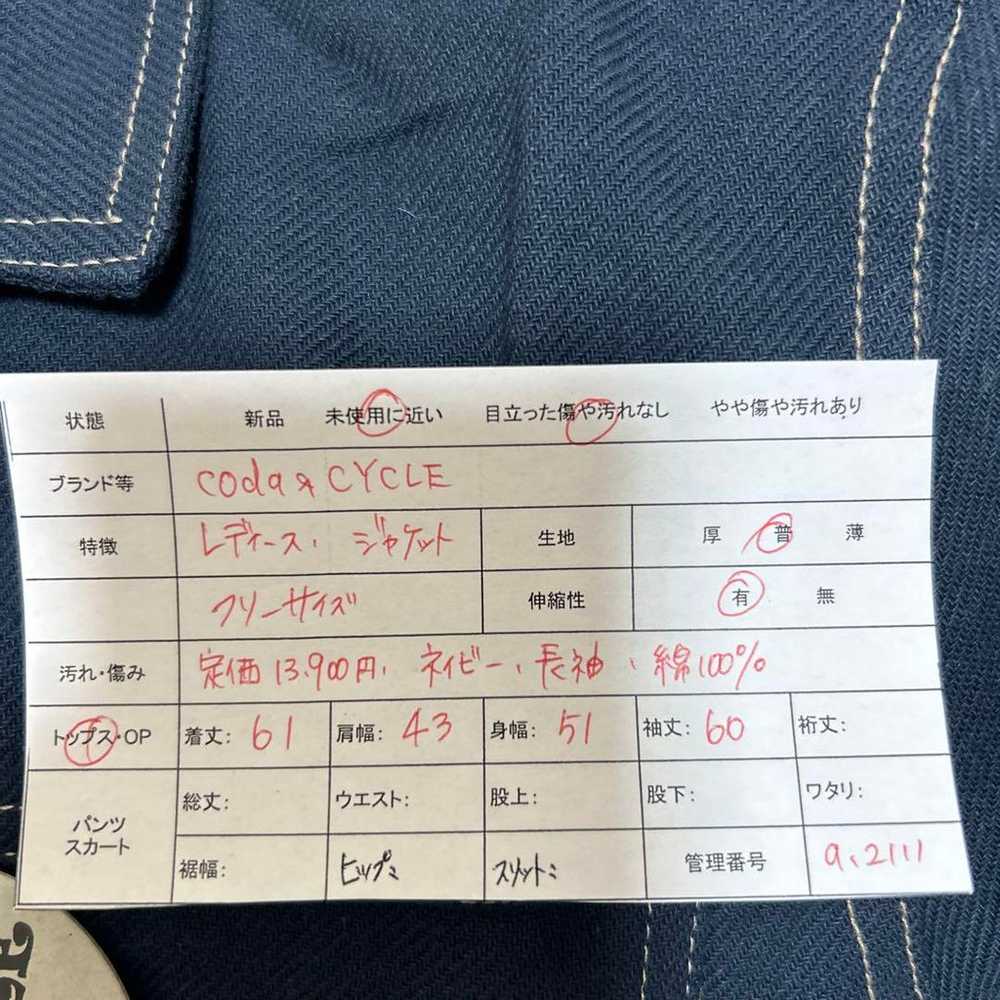 状態 新品 未使用に近い 目立った傷や汚れなし やや傷や汚れあり
ブランド等 coda☆CYCLE
特徴 レディース、 ジャケット 生地 厚 普 薄
フリーサイズ 伸縮性 有 無
汚れ・傷み 定価13,900円、ネイビー、長袖、綿100%
トップス・OP 着丈: 61 肩幅: 43 身幅: 51 袖丈: 60 裄丈:
パンツ スカート 総丈: ウエスト: 股上: 股下: ワタリ:
裾幅: ヒップ: スリット: 管理番号 a、2111